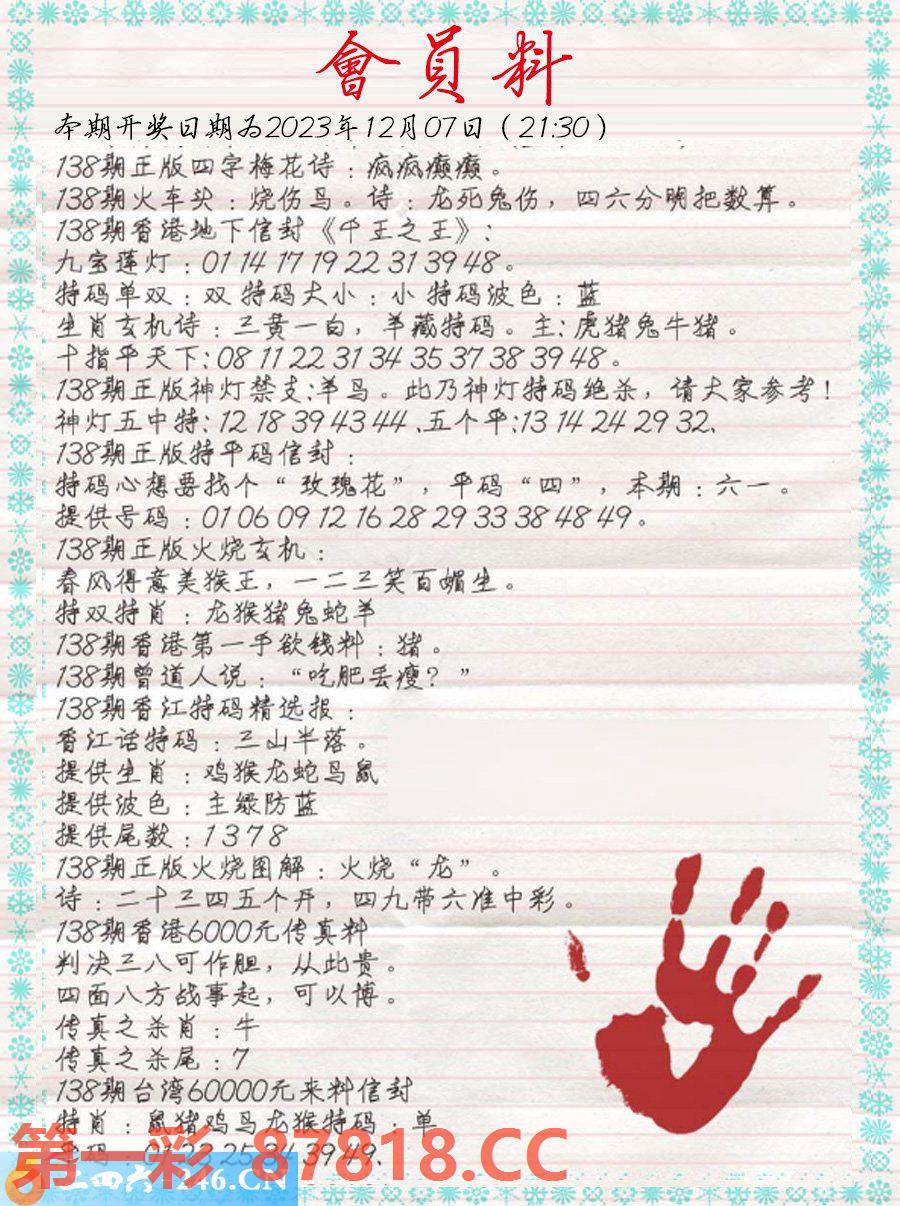 會員料
本期开奖日期为2023年12月07日（21:30）
138期正版四字梅花诗：疯疯癫癫。
138期火车头：烧伤鸟。诗：龙死兔伤，四六分明把数算。
138期香港地下信封《千王之王》：
九宝莲灯：01 14 17 19 22 31 39 48。
特码单双：双 特码大小：小 特码波色：蓝
生肖玄机诗：三黄一白，羊藏特码。主：虎猪兔牛猪。
十指平天下：08 11 22 31 34 35 37 38 39 48。
138期正版神灯禁支：羊鸟。此乃神灯特码绝杀，请大家参考！
神灯五中特：12 18 39 43 44、五个平：13 14 24 29 32、
138期正版特平码信封：
特码心想要找个“玫瑰花”，平码“四”，本期：六一。
提供号码：01 06 09 12 16 28 29 33 38 48 49。
138期正版火烧玄机：
春风得意美猴王，一二三笑百媚生。
特双特肖：龙猴猪兔蛇羊
138期香港第一手欲钱料：猪。
138期曾道人说：“吃肥丢瘦？”
138期香江特码精选报：
香江话特码：三山半落。
提供生肖：鸡猴龙蛇马鼠
提供波色：主绿防蓝
提供尾数：1 3 7 8
138期正版火烧图解：火烧“龙”。
诗：二十三四五个开，四九带六准中彩。
138期香港6000元传真料
判决三八可作胆，从此贵。
四面八方战事起，可以博。
传真之杀肖：牛
传真之杀尾：7
138期台湾60000元来料信封
特肖：鼠猪鸡马龙猴特码：单
39 49、
第一彩 87818.CC
二四六 246.CN